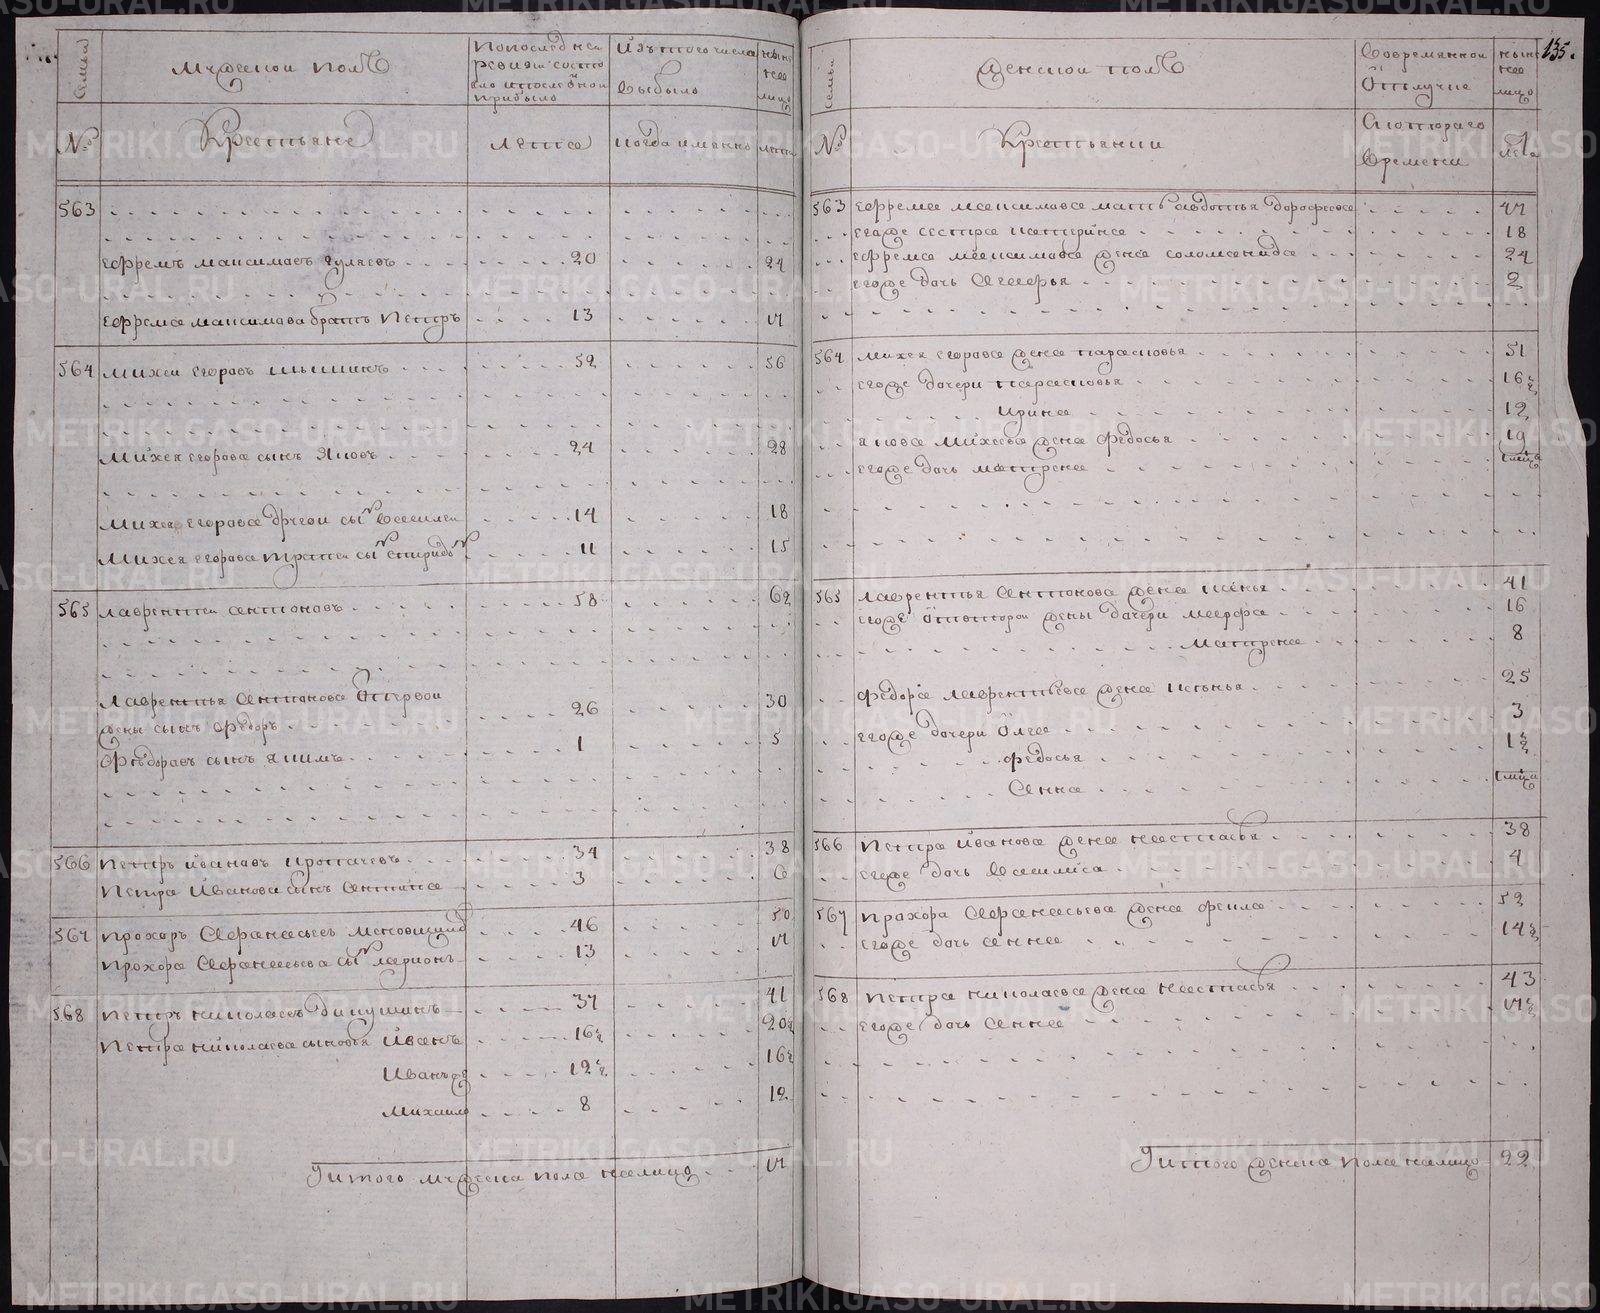 135.
Семьи
Мужескои полъ
По последнеи
ревизи состо
яло и после оной
прибыло
Изъ того числа
выбыло
ныне
лицо
№
Крестьяне
лета
когда именно
лета
563
Ефремъ Максимовъ
20
24
Ефрема Максимова братъ Петръ
13
17
564
Михеи Егоравъ Шишкинъ
52
56
Михея Егорова сынъ Яковъ
24
28
Михея Егорава другои сынъ Василеи
14
18
Михея Егорава третеи сынъ Спиридонъ
11
15
565
Лаврентеи Антоновъ
58
62
Лаврентья Антонова от первои
жены сынъ Федоръ
26
30
Федоравъ сынъ Якимъ
1
5
566
Петръ Ивановъ
34
38
Петра Иванова сынъ Антипа
3
567
Прохоръ Афанасьевъ
46
50
Прохора Афанасьева сынъ Ларионъ
13
17
568
Петръ Николаевъ
37
41
Петра Николаева сыновья Иванъ
16½
20½
Иванъ же
12½
16½
Михаило
8
12
Итого мужеска пола налицо
17
Семьи
Женскои полъ
Во временнои
отлучке
ныне
лицо
№
Крестьянки
С которого
времени
лета
563
Ефрема Максимова мать Авдотья Дорофеева
47
Ево же сестра Катерина
18
Ефрема Максимова жена Соломонида
24
Ево же дочь
2
564
Михея Егорава жена Парасковья
51
Ево же дочери Парасковья
16½
Ирина
12
Якова Михеева жена Федосья
19
Ево же дочь Матрена
565
Лаврентья Антонова жена Ксенья
41
Ево же от второи жены дочери Марфа
16
Матрена
8
Федора Лаврентьева жена
25
Ево же дочери Олга
3
Федосья
1½
Анна
566
Петра Иванова жена Настасья
38
Ево же дочь Василиса
4
567
Прахора Афанасьева жена
52
Ево же дочь Анна
14½
568
Петра Николаева жена Настасья
43
Ево же дочь Анна
17½
Итого женска пола налицо
22
METRIKI.GASO-URAL.RU